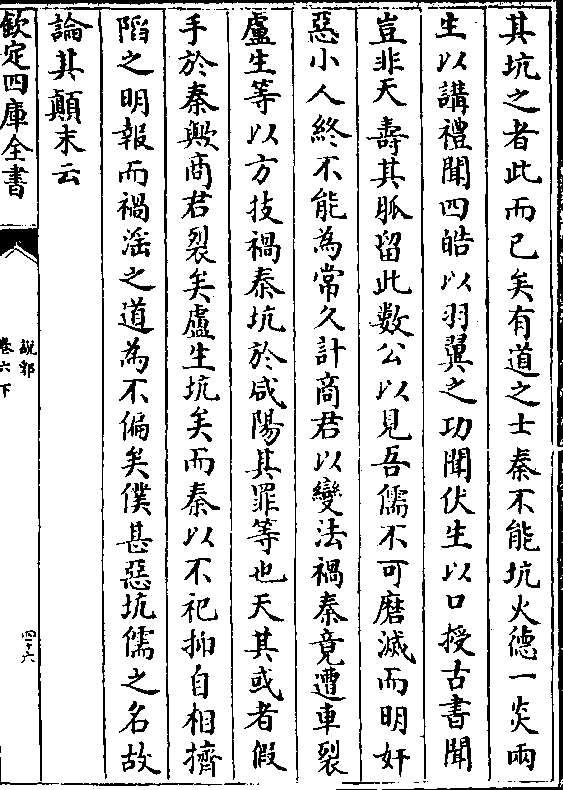 其坑之者此而已矣有道之士秦不能坑火德一炎兩
生以講禮聞四皓以羽翼之功聞伏生以口授古書聞
豈非天壽其脈留此數公以見吾儒不可磨滅而明奸
惡小人終不能為常久計商君以變法禍秦竟遭車裂
盧生等以方技禍秦坑於咸陽其罪等也天其或者假
手於秦歟商君裂矣盧生坑矣而秦以不祀抑自相擠
陷之明報而禍滛之道為不偏矣僕甚惡坑儒之名故
論其顛末云
欽定四庫全書
說郛
卷六下
四十六